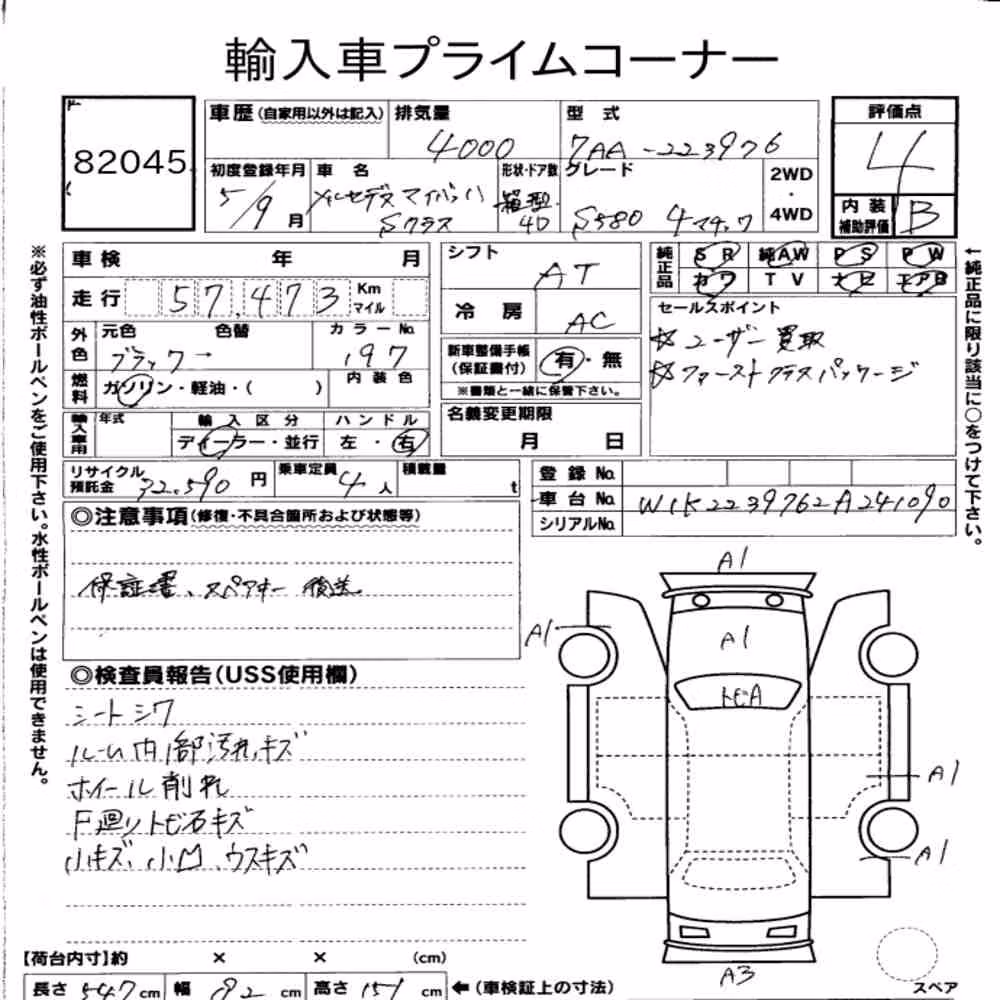 輸入車プライムコーナー
82045
車歴(自家用以外は記入)
排気量
4000
型式
7AA-223976
評価点
4
初度登録年月
5/9月
車名
メルセデスマイバッハ
Sクラス
形状・ドア数
箱型
4D
グレード
S580 4マチック
2WD
・
4WD
内装
補助評価
B
車検 年 月
走行 57,473 Km
マイル
シフト
AT
冷房
AC
純正品
SR 純AW PS PW
カワ TV ナビ エアB
外色
元色 色替
ブラック→
カラーNo.
197
内装色
燃料
ガソリン・軽油・( )
新車整備手帳
(保証書付)
有・無
※書類と一緒に保管下さい。
セールスポイント
☆ユーザー買取
☆ファーストクラスパッケージ
輸入車用
年式
輸入区分
ディーラー・並行
ハンドル
左・右
名義変更期限
月 日
リサイクル
預託金
32,590円
乗車定員
4人
積載量
t
登録No.
車台No.
W1K2239762A241090
シリアルNo.
◎注意事項(修復・不具合箇所および状態等)
保証書、スペアキー 後送
◎検査員報告(USS使用欄)
シートシワ
ルーム内部汚れ、キズ
ホイール削れ
F廻りトビ石キズ
小キズ、小凹、ウスキズ
A1
A1
A1
トビA
A1
A1
A3
スペア
【荷台内寸】約 × × (cm)
長さ 547cm 幅 192cm 高さ 151cm ←(車検証上の寸法)
※必ず油性ボールペンをご使用下さい。水性ボールペンは使用できません。
←純正品に限り該当に○をつけて下さい。